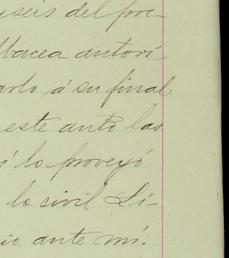 seis del pre-
Macea autori
arlo á su final
este auto las
í lo proveyó
lo civil Li-
io, ante mí.